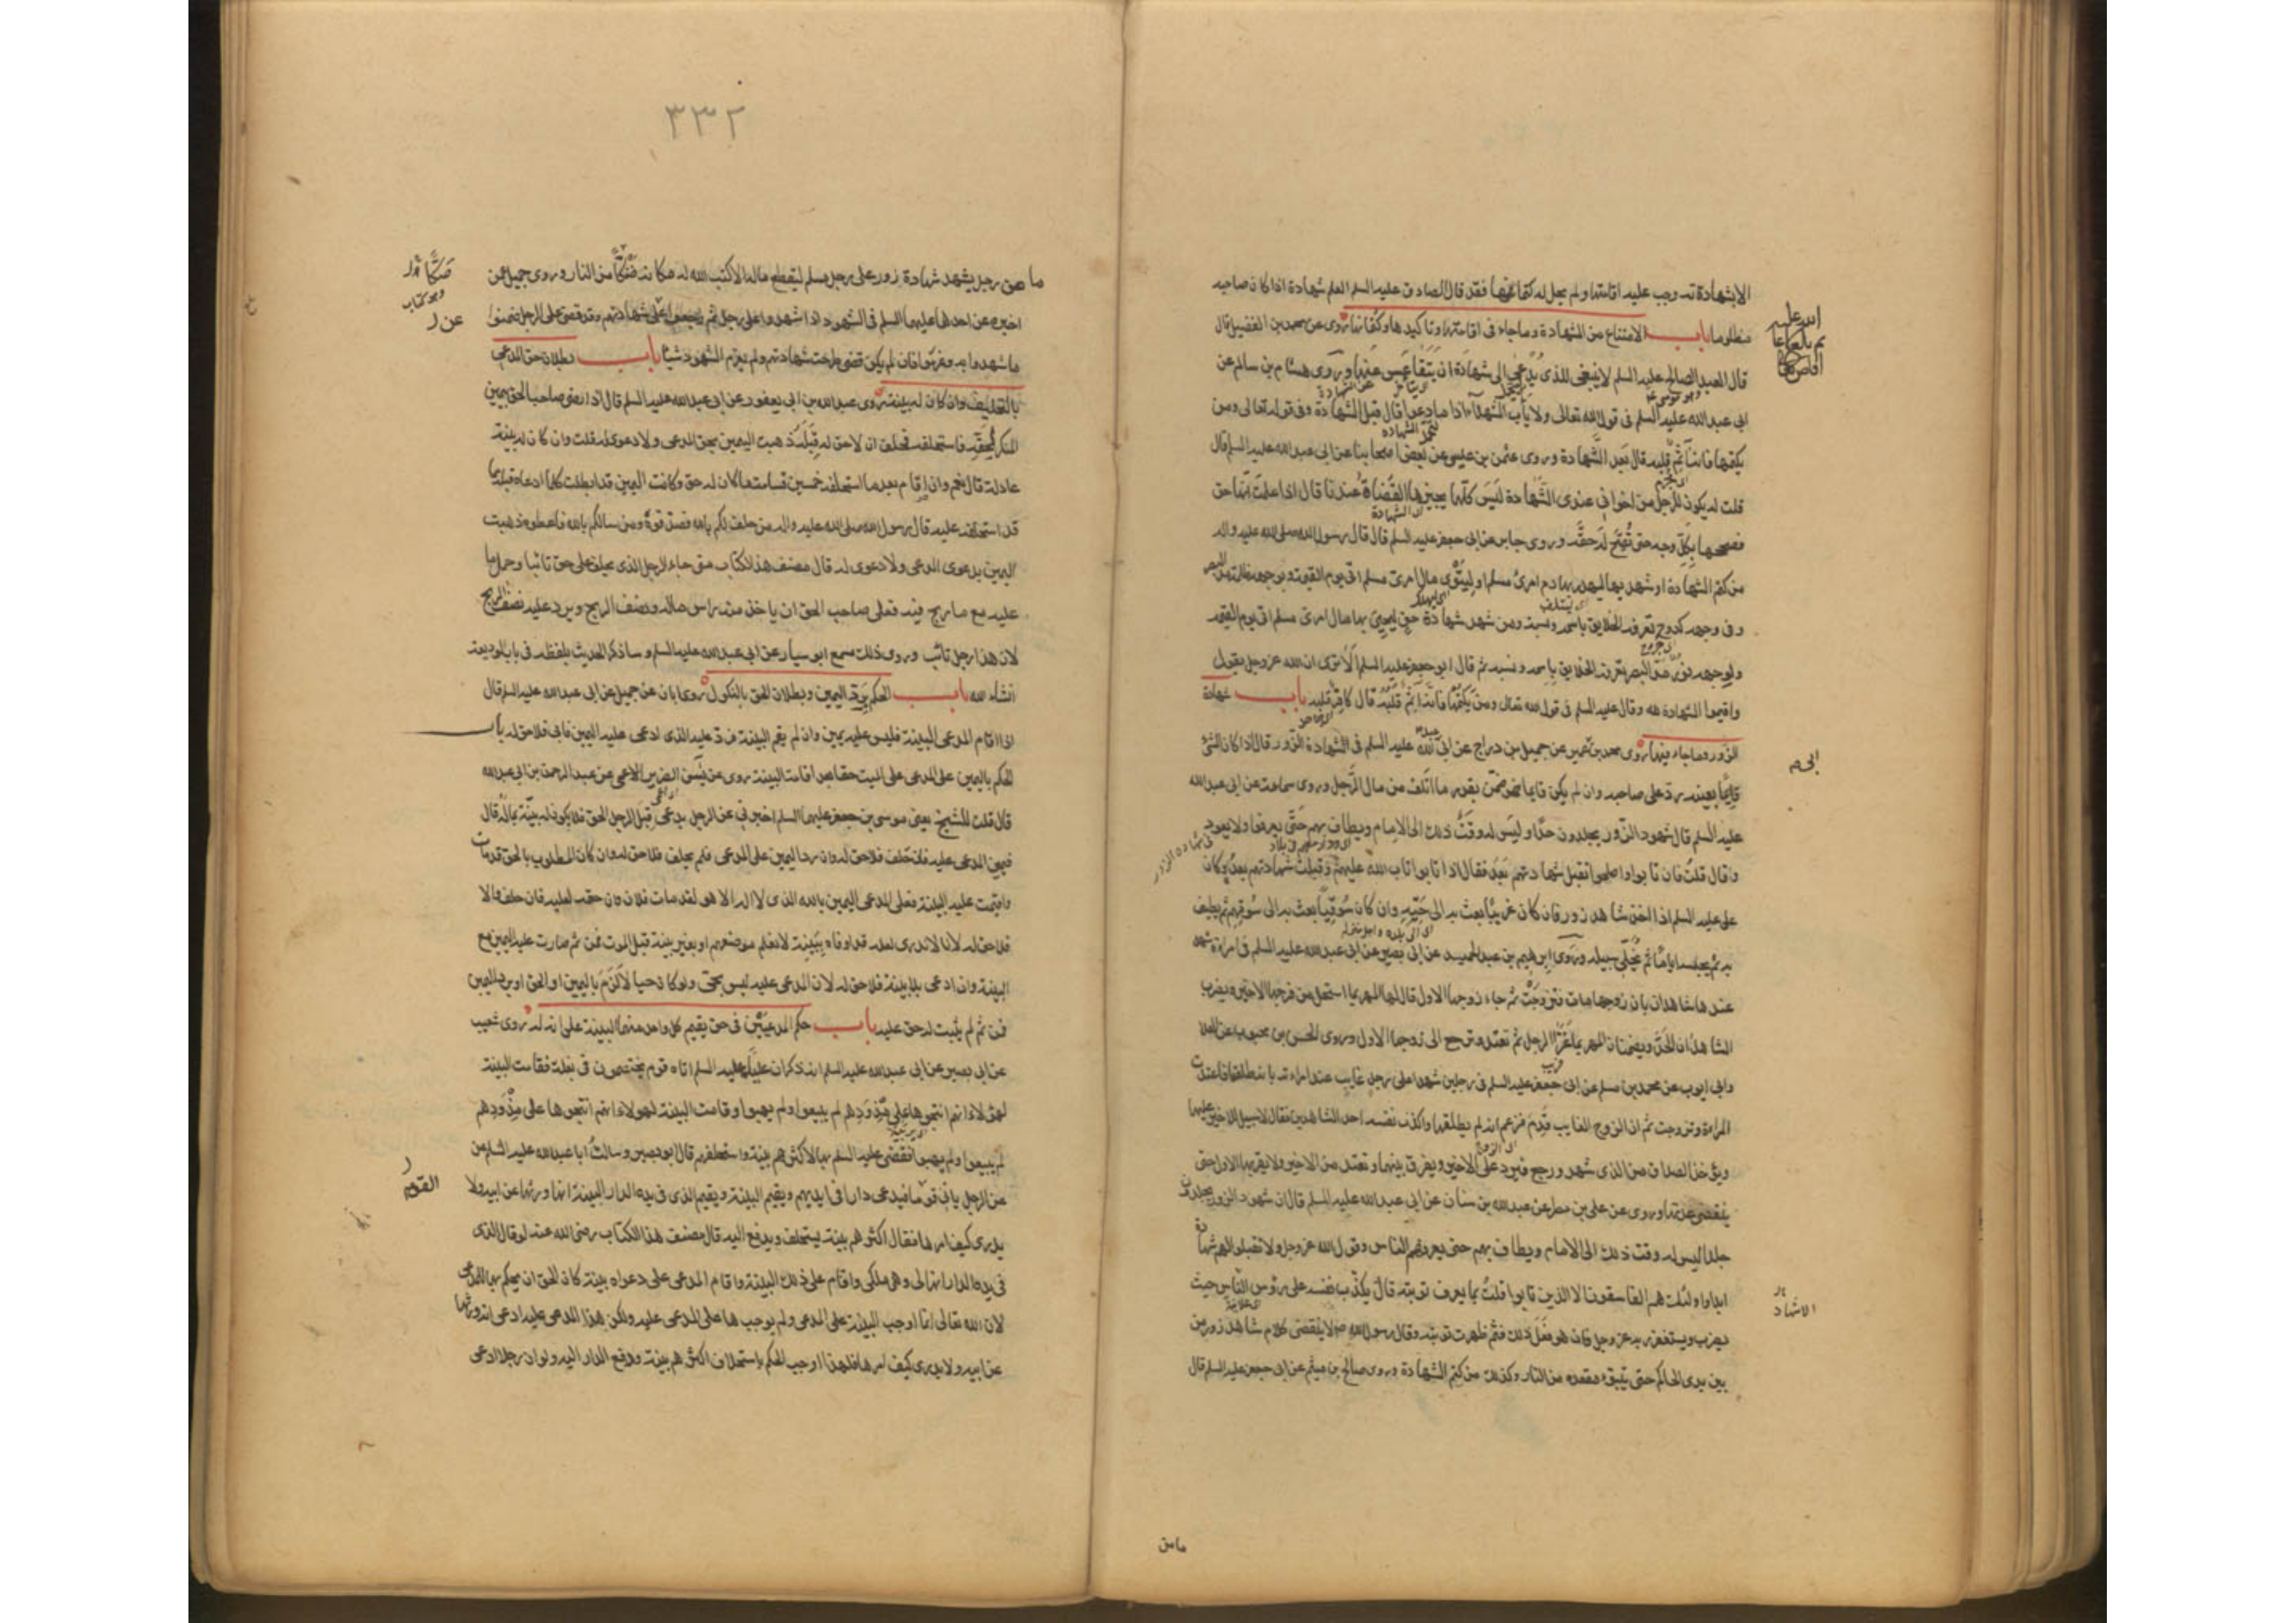 الاشهادة قد وجب عليه اقامتها ولم يحل له كتمانها فقد قال الصادق عليه السلم العلم شهادة اذا كان صاحبه
مظلوما باب الامتناع من الشهادة وما جاء في اقامتها وتاكيدها وكتمانها روى عن محمد بن الفضيل قال
قال العبد الصالح عليه السلم لا ينبغى للذى يُدعى الى شهادة ان يتقاعس عنها وروى هشام بن سالم عن
ابى عبد الله عليه السلم فى قول الله تعالى ولا يأب الشهدآء اذا ما دعوا قال قبل الشهادة وفى قوله تعالى ومن
يكتمها فانه آثم قلبه قال بعد الشهادة وروى عثمن بن عيسى عن بعض اصحابنا عن ابى عبد الله عليه السلم قال
قلت له يكون للرجل من اخوانى عندى الشهادة ليس كلها يجيزها القضاة عندنا قال اذا علمت انها حق
فصححها بكل وجه حتى تصح له حقه وروى جابر عن ابى جعفر عليه السلم قال قال رسول الله صلى الله عليه واله
من كتم الشهادة او شهد بها ليهدر بها دم امرئ مسلم او ليتوى مال امرئ مسلم اتى يوم القيمة ولوجهه ظلمة مد البصر
وفى وجهه كدوح تعرفه الخلايق باسمه ونسبه ومن شهد شهادة حق ليحيى بها مال امرئ مسلم اتى يوم القيمة
ولوجهه نور مد البصر تعرفه الخلايق باسمه ونسبه ثم قال ابو جعفر عليه السلم الا ترى ان الله عز وجل يقول
واقيموا الشهادة لله وقال عليه السلم فى قول الله تعالى ومن يكتمها فانه آثم قلبه قال كافر قلبه باب شهادة
الزور وما جاء فيها روى محمد بن ابى عمير عن جميل بن دراج عن ابى عبد الله عليه السلم فى الشهادة الزور قال اذا كان الشئ
قايما بعينه رد على صاحبه وان لم يكن قايما ضمن بقدر ما اتلف من مال الرجل وروى سماعة عن ابى عبد الله
عليه السلم قال شهود الزور يجلدون حدا وليس له وقت ذلك الى الامام ويطاف بهم حتى يعرفوا ولا يعودوا
قال قلت فان تابوا واصلحوا تقبل شهادتهم بعد فقال اذا تابوا تاب الله عليهم وقبلت شهادتهم بعد وكان
على عليه السلم اذا اخذ شاهد زور فان كان غريبا بعث به الى حيه وان كان سوقيا بعث به الى سوقهم ثم يطيف
به ثم يحبسه اياما ثم يخلى سبيله وروى ابرهيم بن عبد الحميد عن ابى بصير عن ابى عبد الله عليه السلم فى امراة شهد
عندها شاهدان بان زوجها مات فتزوجت ثم جاء زوجها الاول قال لها المهر بما استحل من فرجها الاخير ويضرب
الشاهدان الحد ويضمنان المهر بما غرا الرجل ثم تعتد وترجع الى زوجها الاول وروى الحسن بن محبوب عن العلا
وابى ايوب عن محمد بن مسلم عن ابى جعفر عليه السلم فى رجلين شهدا على رجل غايب عند امراته بانه طلقها فاعتدت
المراة وتزوجت ثم ان الزوج الغايب قدم فزعم انه لم يطلقها واكذب نفسه احد الشاهدين فقال لا سبيل للاخير عليها
ويؤخذ الصداق من الذى شهد ورجع فيرد على الاخير ويفرق بينهما وتعتد من الاخير ولا يقربها الاول حتى
ينقضى عدتها وروى عن على بن مطر عن عبد الله بن سنان عن ابى عبد الله عليه السلم قال ان شهود الزور يجلدون
جلدا ليس له وقت ذلك الى الامام ويطاف بهم حتى يعرفهم الناس وقول الله عز وجل ولا تقبلوا لهم شهادة
ابدا واولئك هم الفاسقون الا الذين تابوا قلت بما يعرف توبته قال يكذب نفسه على رؤس الناس حيث
يضرب ويستغفر ربه عز وجل فان هو فعل ذلك فثم ظهرت توبته وقال رسول الله ص لا ينقضى كلام شاهد زور من
بين يدى الحاكم حتى يتبوء مقعده من النار وكذلك من كتم الشهادة وروى صالح بن ميثم عن ابى جعفر عليه السلم قال
ما من
٣٣٢
ما من رجل يشهد شهادة زور على رجل مسلم ليقطع ماله الا كتب الله له مكانه صكا من النار وروى جميل عن
اخبره عن احدهما عليهما السلم فى الشهود اذا شهدوا على رجل ثم رجعوا على شهادتهم وقد قضى على الرجل ضمنوا
ما شهدوا به وغرموا فان لم يكن قضى طرحت شهادتهم ولم يغرم الشهود شيئا باب بطلان حق المدعى
بالتحليف وان كان له بينة روى عبد الله بن ابى يعفور عن ابى عبد الله عليه السلم قال اذا رضى صاحب الحق بيمين
المنكر لحقه فاستحلفه فحلف ان لا حق له قبله ذهبت اليمين بحق المدعى ولا دعوى له قلت وان كان له بينة
عادلة قال نعم وان اقام بعد ما استحلفه خمسين قسامة ما كان له حق وكانت اليمين قد ابطلت كلما ادعاه قبله مما
قد استحلفه عليه قال رسول الله صلى الله عليه واله من حلف لكم بالله فصدقوه ومن سالكم بالله فاعطوه ذهبت
اليمين بدعوى المدعى ولا دعوى له قال مصنف هذا الكتاب متى جاء الرجل الذى يحلف على حق تائبا وحمل ما
عليه مع ما ربح فيه فعلى صاحب الحق ان ياخذ منه راس ماله ونصف الربح ويرد عليه نصف الربح
لان هذا رجل تائب وروى ذلك مسمع ابو سيار عن ابى عبد الله عليه السلم وساذكر الحديث بلفظه فى باب الوديعة
انشاء الله باب الحكم برد اليمين وبطلان الحق بالنكول روى ابان عن جميل عن ابى عبد الله عليه السلم قال
اذا اقام المدعى البينة فليس عليه يمين وان لم يقم البينة فرد عليه الذى ادعى عليه اليمين فابى فلا حق له باب
الحكم باليمين على المدعى على الميت حقا بعد اقامة البينة روى عن يس الضرير عن عبد الرحمن بن ابى عبد الله
قال قلت للشيخ يعنى موسى بن جعفر عليهما السلم اخبرنى عن الرجل يدعى قبل الرجل الحق فلا يكون له بينة بماله قال
فيمين المدعى عليه فان حلف فلا حق له وان رد اليمين على المدعى فلم يحلف فلا حق له وان كان المطلوب بالحق قد مات
واقيمت عليه البينة فعلى المدعى اليمين بالله الذى لا اله الا هو لقد مات فلان وان حقه لعليه فان حلف والا
فلا حق له لانا لا ندرى لعله قد اوفاه ببينة لا نعلم موضعهم او بغير بينة قبل الموت فمن ثم صارت عليه اليمين مع
البينة وان ادعى بلا بينة فلا حق له لان المدعى عليه ليس بحى ولو كان حيا لالزم باليمين او الحق او يرد اليمين
فمن ثم لم يثبت له حق عليه باب حكم المدعيين فى حق يقيم كل واحد منهما البينة على انه له روى شعيب
عن ابى بصير عن ابى عبد الله عليه السلم انه ذكر ان عليا عليه السلم اتاه قوم يختصمون فى بغلة فقامت البينة
لهؤلاء انهم انتجوها على مذودهم لم يبيعوا ولم يهبوا وقامت البينة لهؤلاء انهم انتجوها على مذودهم
لم يبيعوا ولم يهبوا فقضى عليه السلم بها لاكثرهم بينة واستحلفهم قال ابو بصير وسالت ابا عبد الله عليه السلام عن
عن الرجل ياتى قوما فيدعى دارا فى ايديهم ويقيم البينة ويقيم الذى فى يده الدار البينة انها ورثها عن ابيه ولا
يدرى كيف امرها فقال اكثرهم بينة يستحلف ويدفع اليه قال مصنف هذا الكتاب رضى الله عنه لو قال الذى
فى يده الدار انها لى وهى ملكى واقام على ذلك البينة واقام المدعى على دعواه بينة كان الحق ان يحكم بها للمدعى
لان الله تعالى انما اوجب البينة على المدعى ولم يوجبها على المدعى عليه ولكن هذا المدعى عليه ادعى انه ورثها
عن ابيه ولا يدرى كيف امرها فلهذا اوجب الحكم باستحلاف اكثرهم بينة ودفع الدار اليه ولو ان رجلا ادعى